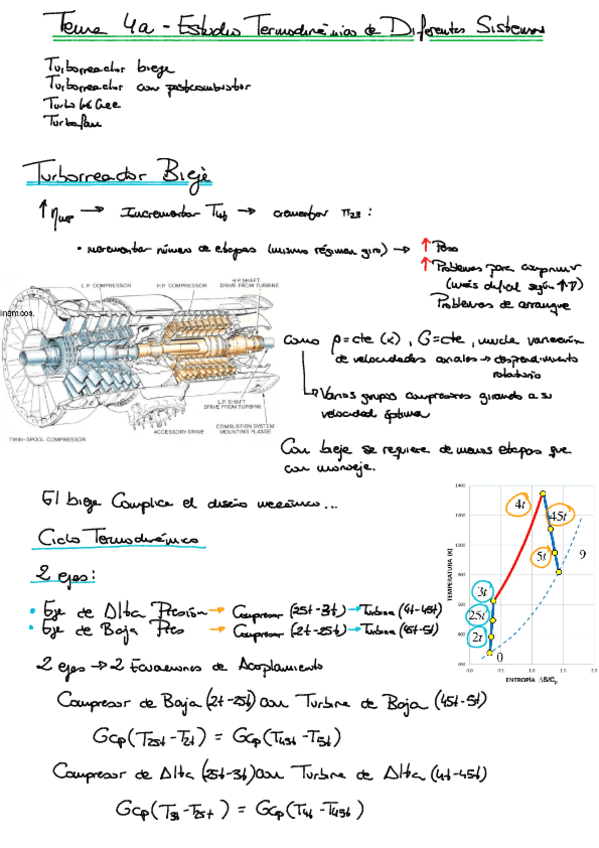 Tema 4a - Estudio Termodinámico de Diferentes Sistemas
Turborreador bieje
Turborreactor con postcombustor
Turbofan
Turborreador Bieje
↑ → Incrementar → π23 :
• Incrementar número de etapas (mismo régimen giro) → ↑ Peso
↑ Problemas para comprimir
(más difícil según ↑P)
Problemas de arranque
L.P. COMPRESSOR
H.P. COMPRESSOR
H.P. SHAFT
DRIVE FROM TURBINE
L.P. SHAFT
DRIVE FROM TURBINE
ACCESSORY DRIVE
COMBUSTION SYSTEM
MOUNTING FLANGE
TWIN-SPOOL COMPRESSOR
Como ρ=cte (x), G=cte, mucha variación
de velocidades axiales → desprendimiento
rotatorio
→ Varios grupos compresores girando a su
velocidad óptima
Con bieje se requiere de menos etapas que
con monoeje.
El bieje Complica el diseño mecánico...
Ciclo Termodinámico
2 ejes:
• Eje de Alta Presión → Compresor (25t-3t) → Turbina (4t-45t)
• Eje de Baja Pres → Compresor (2t-25t) → Turbina (45t-5t)
2 ejes → 2 Ecuaciones de Acoplamiento
Compresor de Baja (2t-25t) con Turbina de Baja (45t-5t)
Gcp(T25t-T2t) = Gcp(T45t-T5t)
Compresor de Alta (25t-3t) con Turbina de Alta (4t-45t)
Gcp(T3t-T25t) = Gcp(T4t-T45t)
TEMPERATURA (K)
1400
1200
1000
4t
45t
5t
9
3t
25t
2t
0
0.0 0.5 1.0 1.5 2.0
ENTROPÍA ΔS/Cp